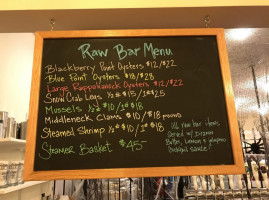 Raw Bar Menu
Blackberry Point Oysters $12/$22
Blue Point Oysters $18/$28
Large Rappahannock Oysters $12/$22
Snow Crab Legs ½ # $15/1# $25
Mussels ½ # $10/1# $18
Middleneck Clams $10/$18 pound
Steamed Shrimp ½ # $10/1# $18
All raw bar items
Served w/ Drawn
Butter, Lemon &
Cocktail sauce!
Steamer Basket $45-